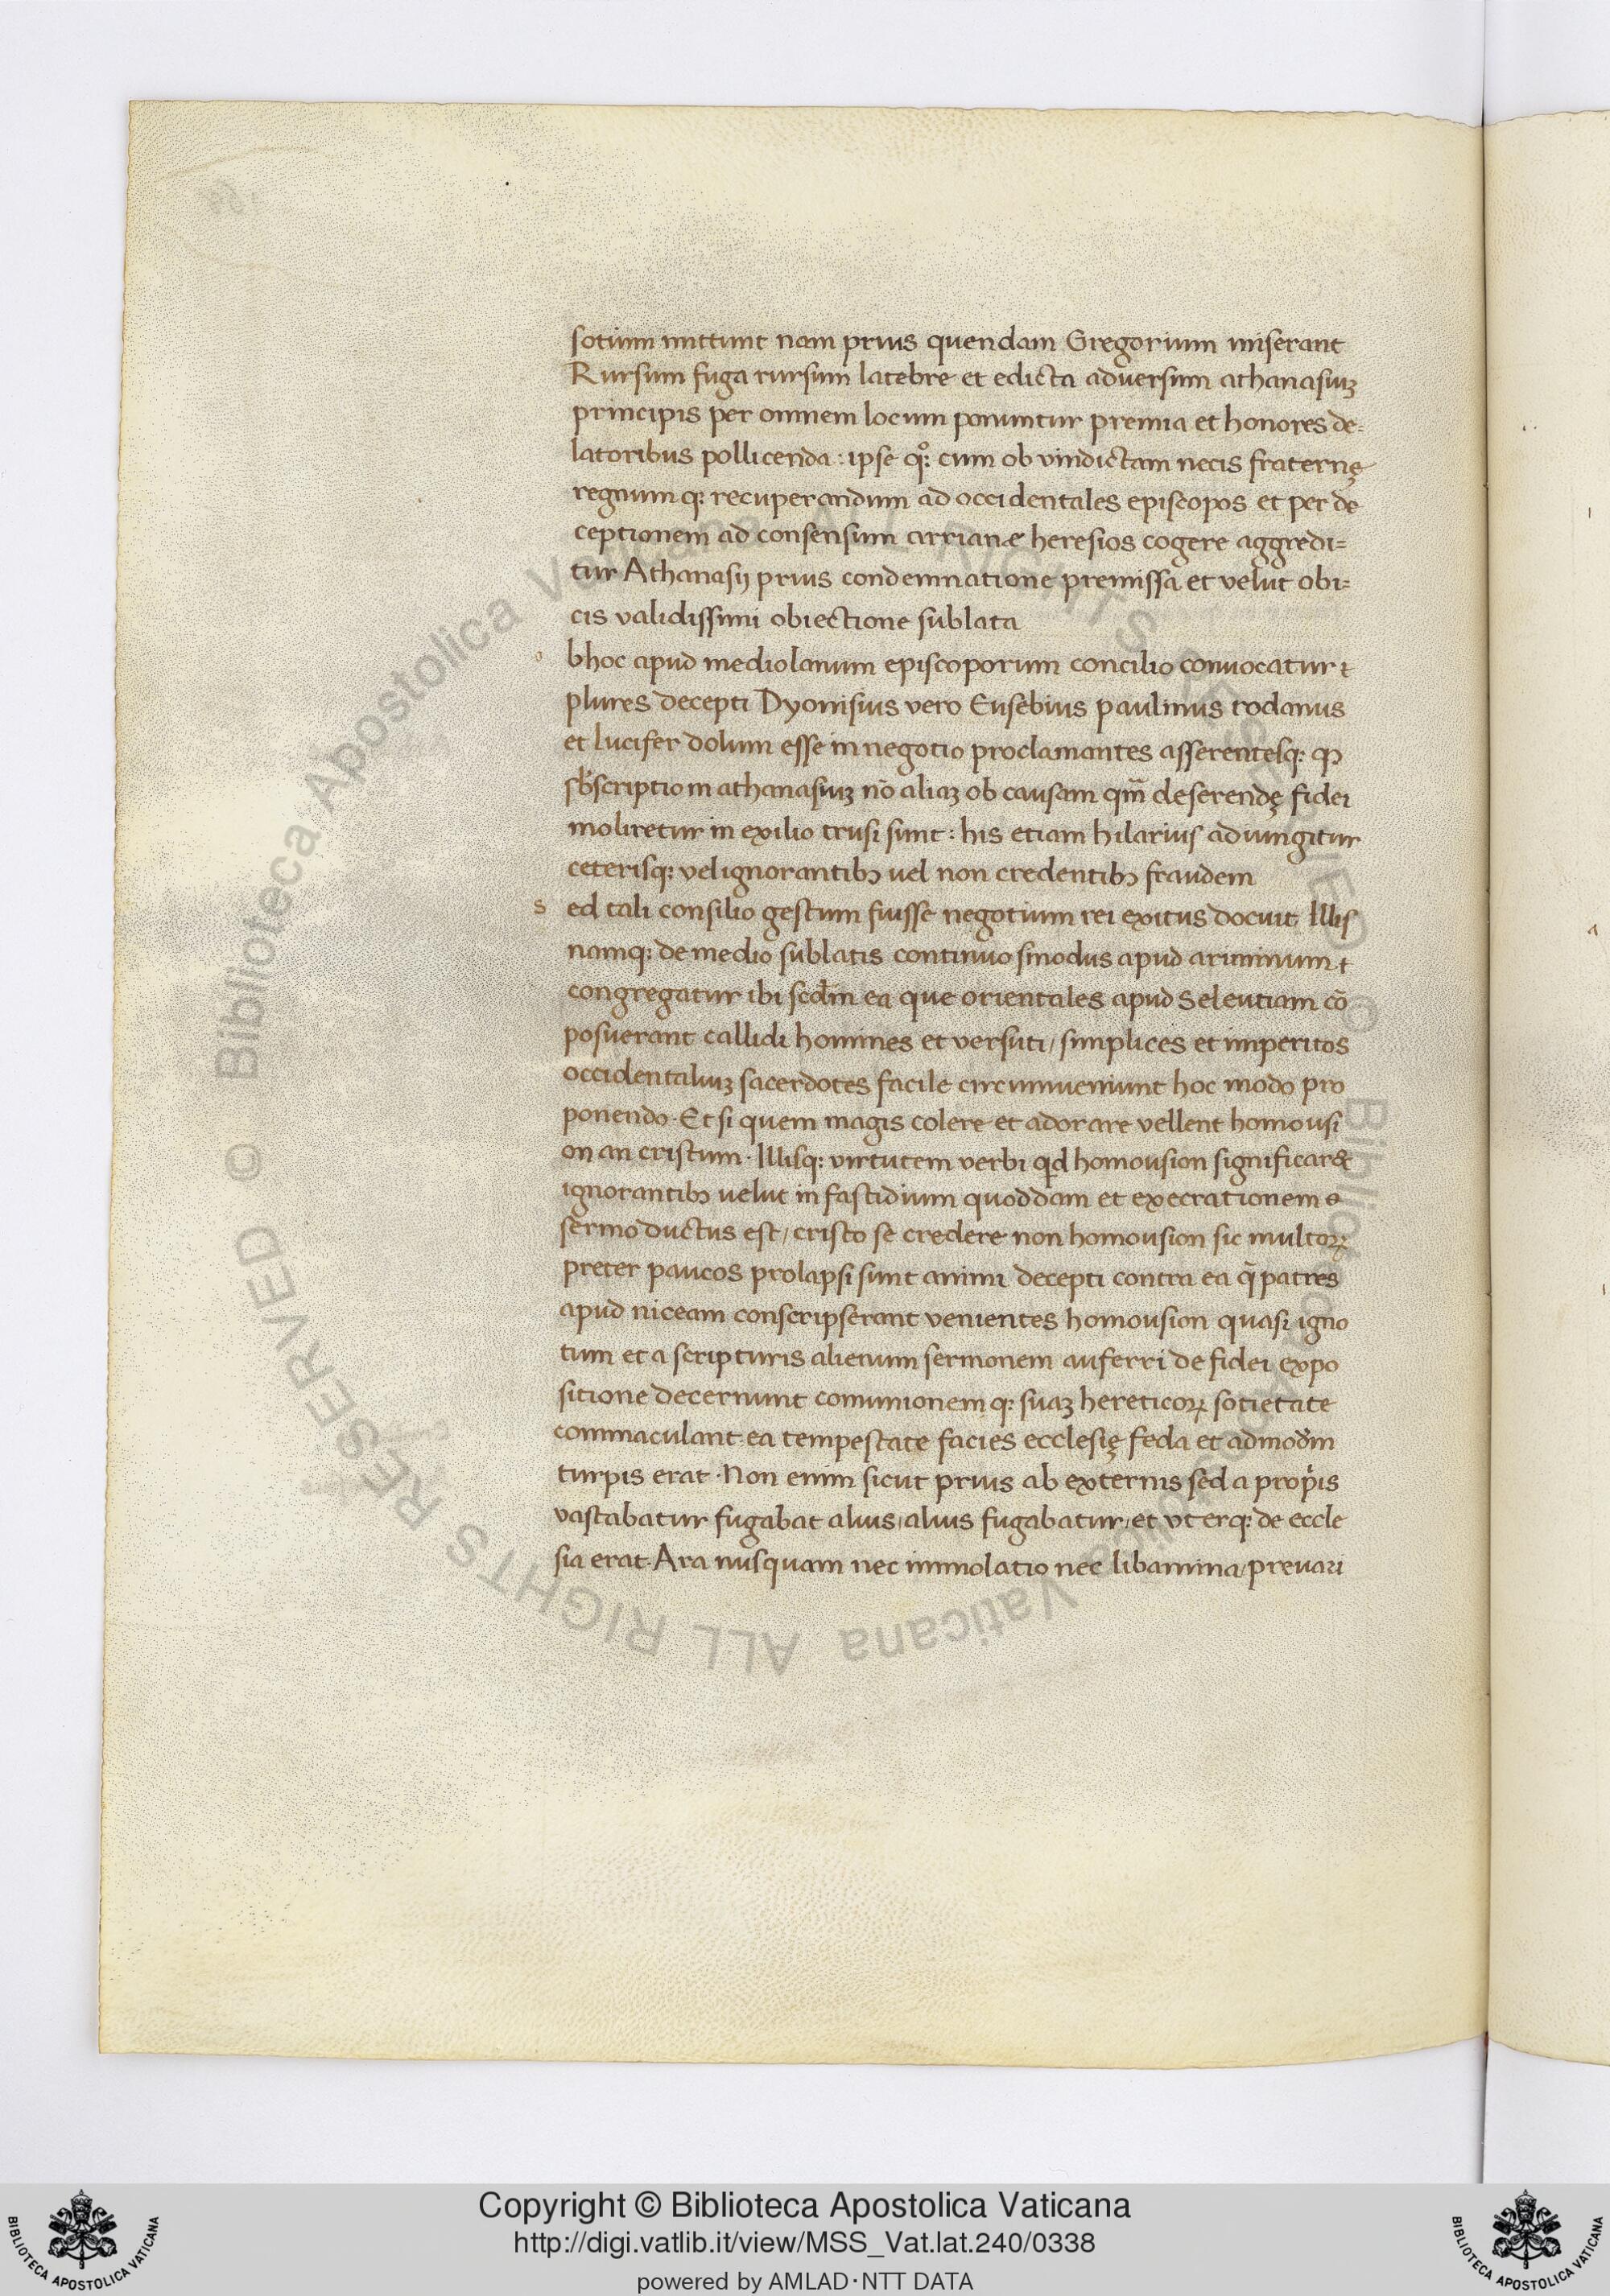 sotium mittunt nam prius quendam Gregorium miserant
Rursum fuga rursum latebre et edicta adversum athanasiuꝫ
principis per omnem locum ponuntur premia et honores de=
latoribus pollicenda : ipse qͦꝫ cum ob vindictam necis fraternę
regnum qꝫ recuperandum ad occidentales episcopos et per de
ceptionem ad consensum arrianæ heresios cogere aggredi=
tur Athanasij prius condemnatione premissa et velut obi=
cis validissimi obiectione sublata
o bhoc apud mediolanum episcoporum concilio convocatur &
plures decepti Dyonisius vero Eusebius paulinus rodanus
et lucifer dolum esse in negotio proclamantes asserentesqꝫ ꝙ
sƀscriptio in athanasiuꝫ nō aliaꝫ ob causam qm̄ deserendę fidei
moliretur in exilio trusi sunt : his etiam hilarius adiungitur
ceterisqꝫ vel ignorantibꝫ uel non credentibꝫ fraudem
s ed tali consilio gestum fuisse negotium rei exitus docuit Illis
namqꝫ de medio sublatis continuo sinodus apud ariminum &
congregatur ibi scdm̄ ea que orientales apud Seleutiam cō
posuerant callidi homines et versuti / simplices et imperitos
occidentaliuꝫ sacerdotes facile circumveniunt hoc modo pro
ponendo · Et si quem magis colere et adorare vellent homousi
on an cristum · Illisqꝫ virtutem verbi qd homousion significaret
ignorantibꝫ uelut in fastidium quoddam et execrationem e
sermo ductus est / cristo se credere non homousion sic multoꝝ
preter paucos prolapsi sunt animi decepti contra ea q̄ patres
apud niceam conscripserant venientes homousion quasi igno
tum et a scripturis alienum sermonem auferri de fidei expo
sitione decernunt comunionem qꝫ suaꝫ hereticoꝝ sotietate
commaculant · ea tempestate facies ecclesię feda et admodm̄
turpis erat · Non enim sicut prius ab externis sed a propͥis
vastabatur fugabat alius / alius fugabatur / et uterqꝫ de eccle
sia erat · Ara nusquam nec immolatio nec libamina / prevari
© Biblioteca Apostolica Vaticana ALL RIGHTS RESERVED © Biblioteca Apostolica Vaticana ALL RIGHTS RESERVED
BIBLIOTECA APOSTOLICA VATICANA
Copyright © Biblioteca Apostolica Vaticana
http://digi.vatlib.it/view/MSS_Vat.lat.240/0338
powered by AMLAD·NTT DATA
BIBLIOTECA APOSTOLICA VATICANA